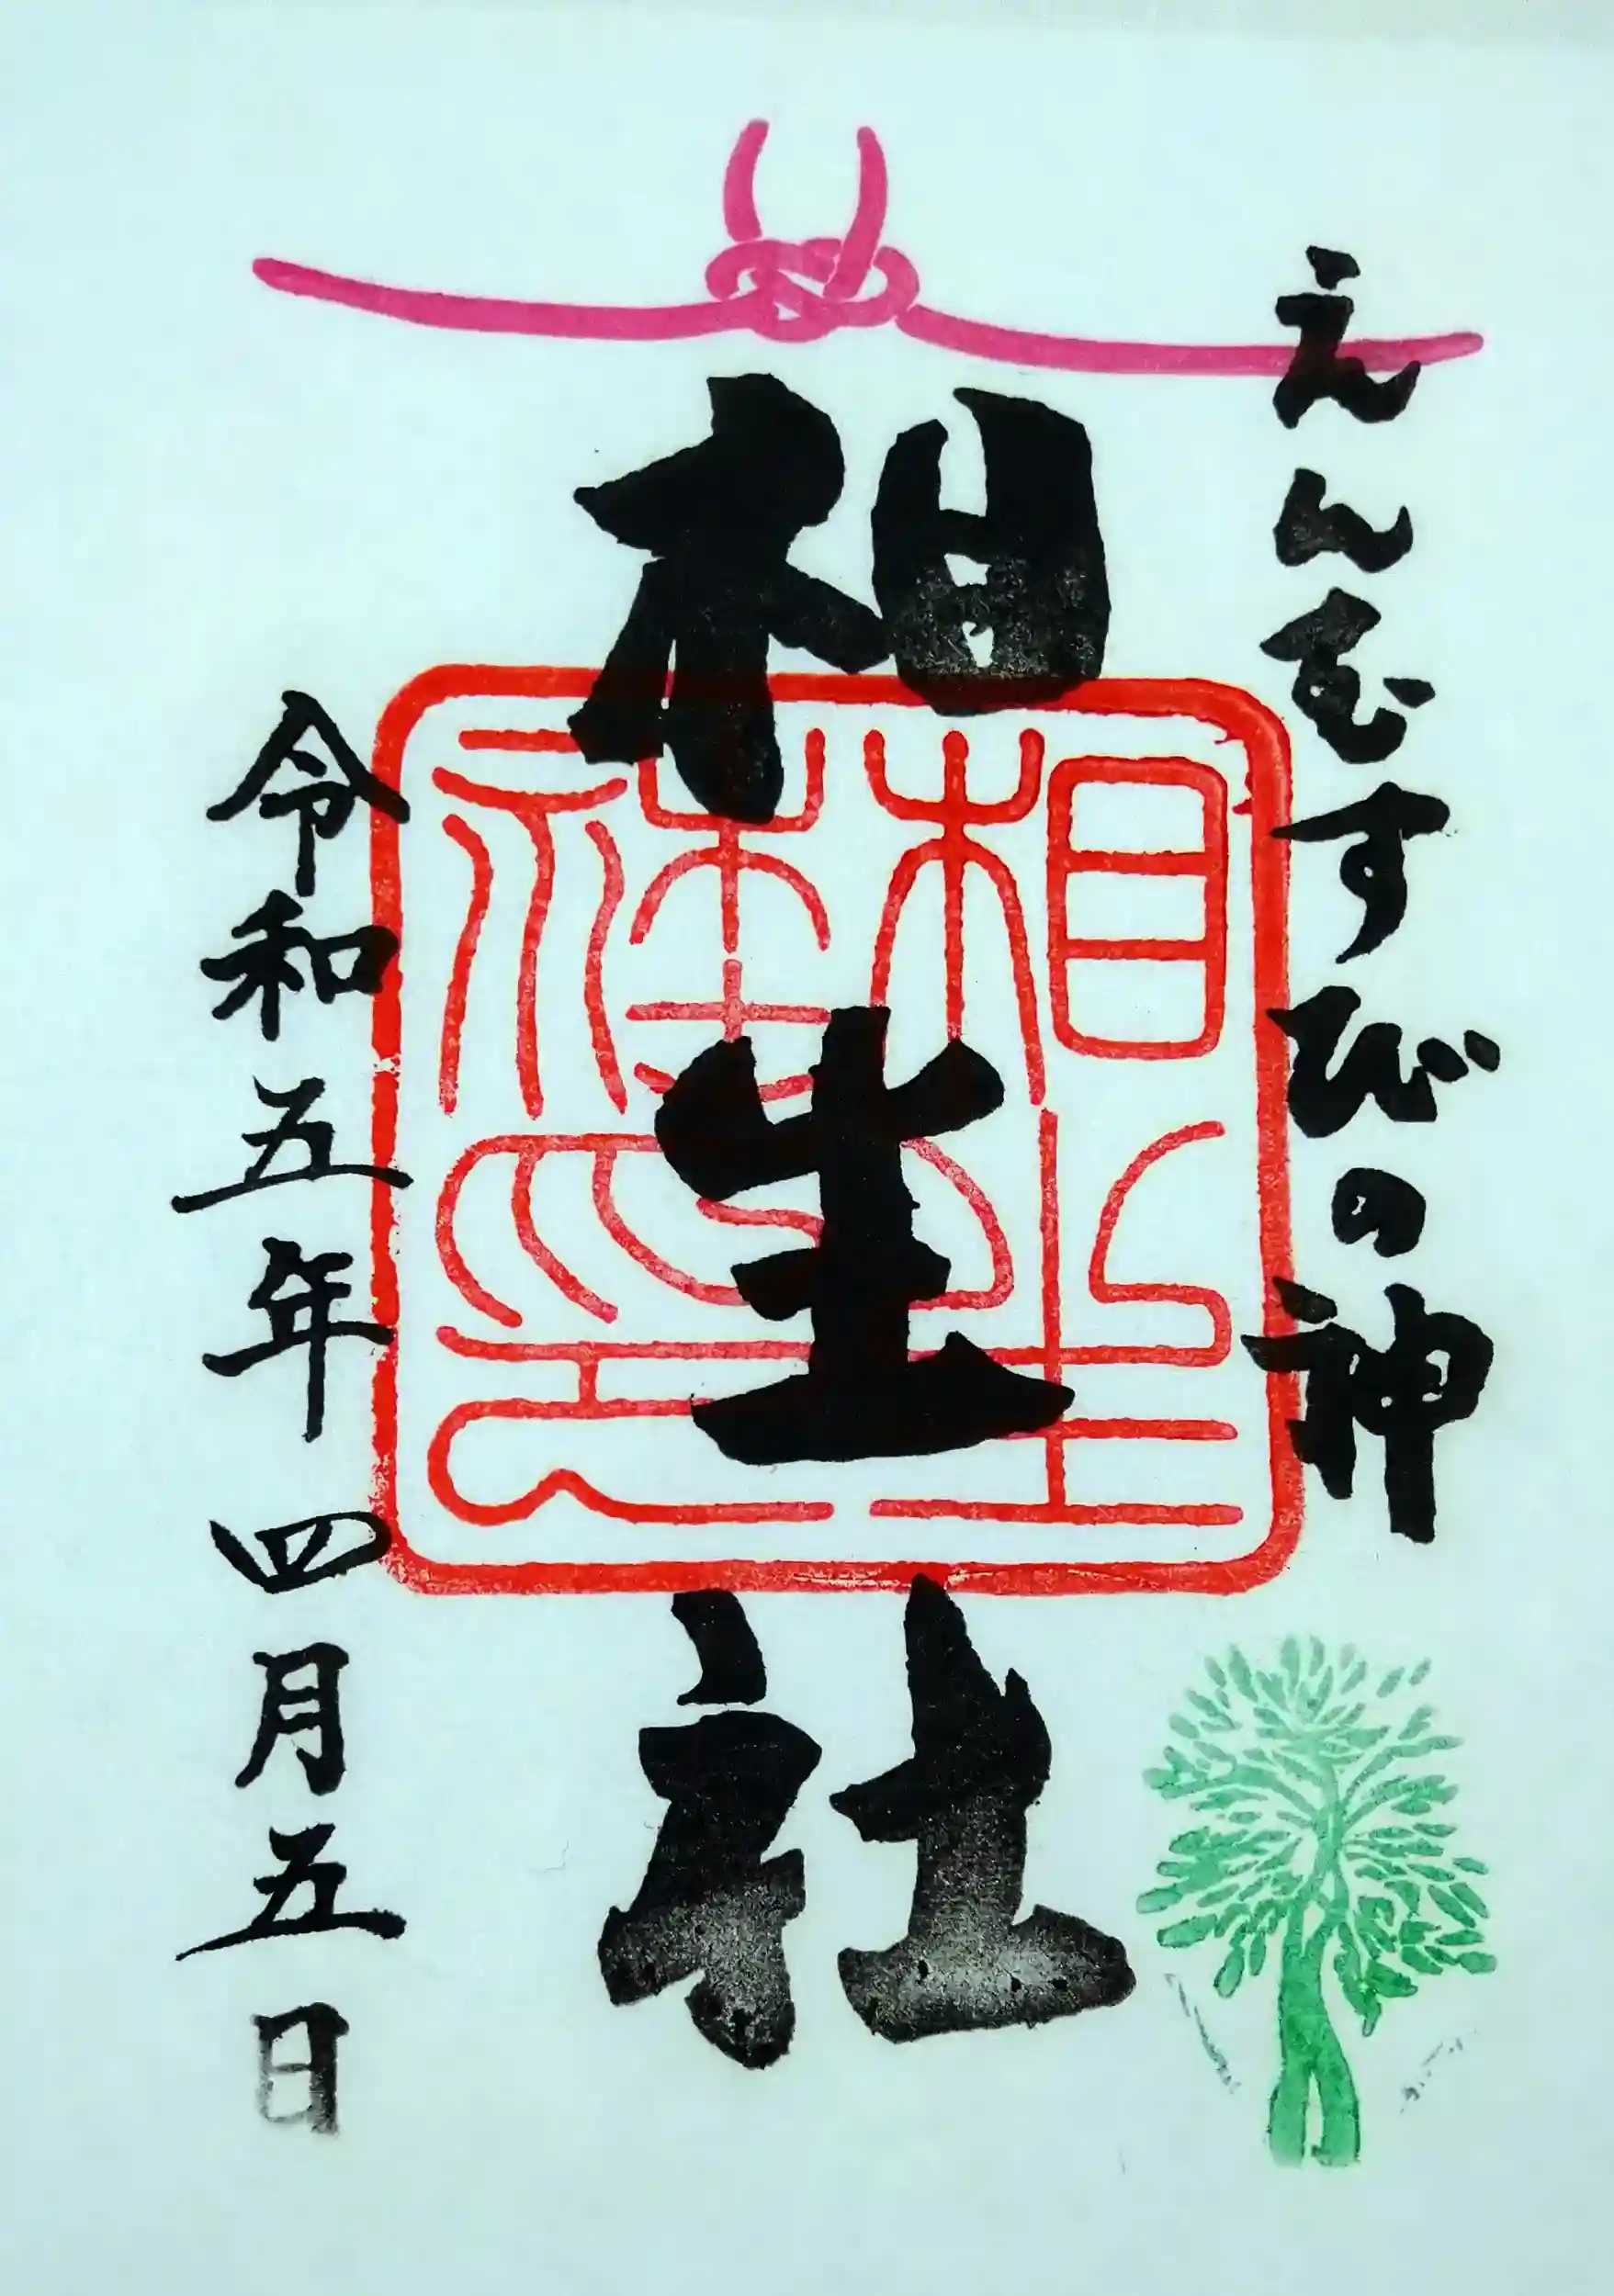 えんむすびの神
相生社
令和五年四月五日